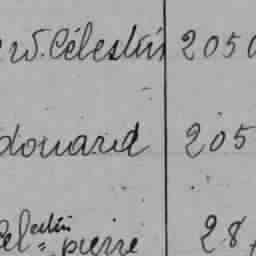 w. Célestin 2050
douard 205
Celestin pierre 28